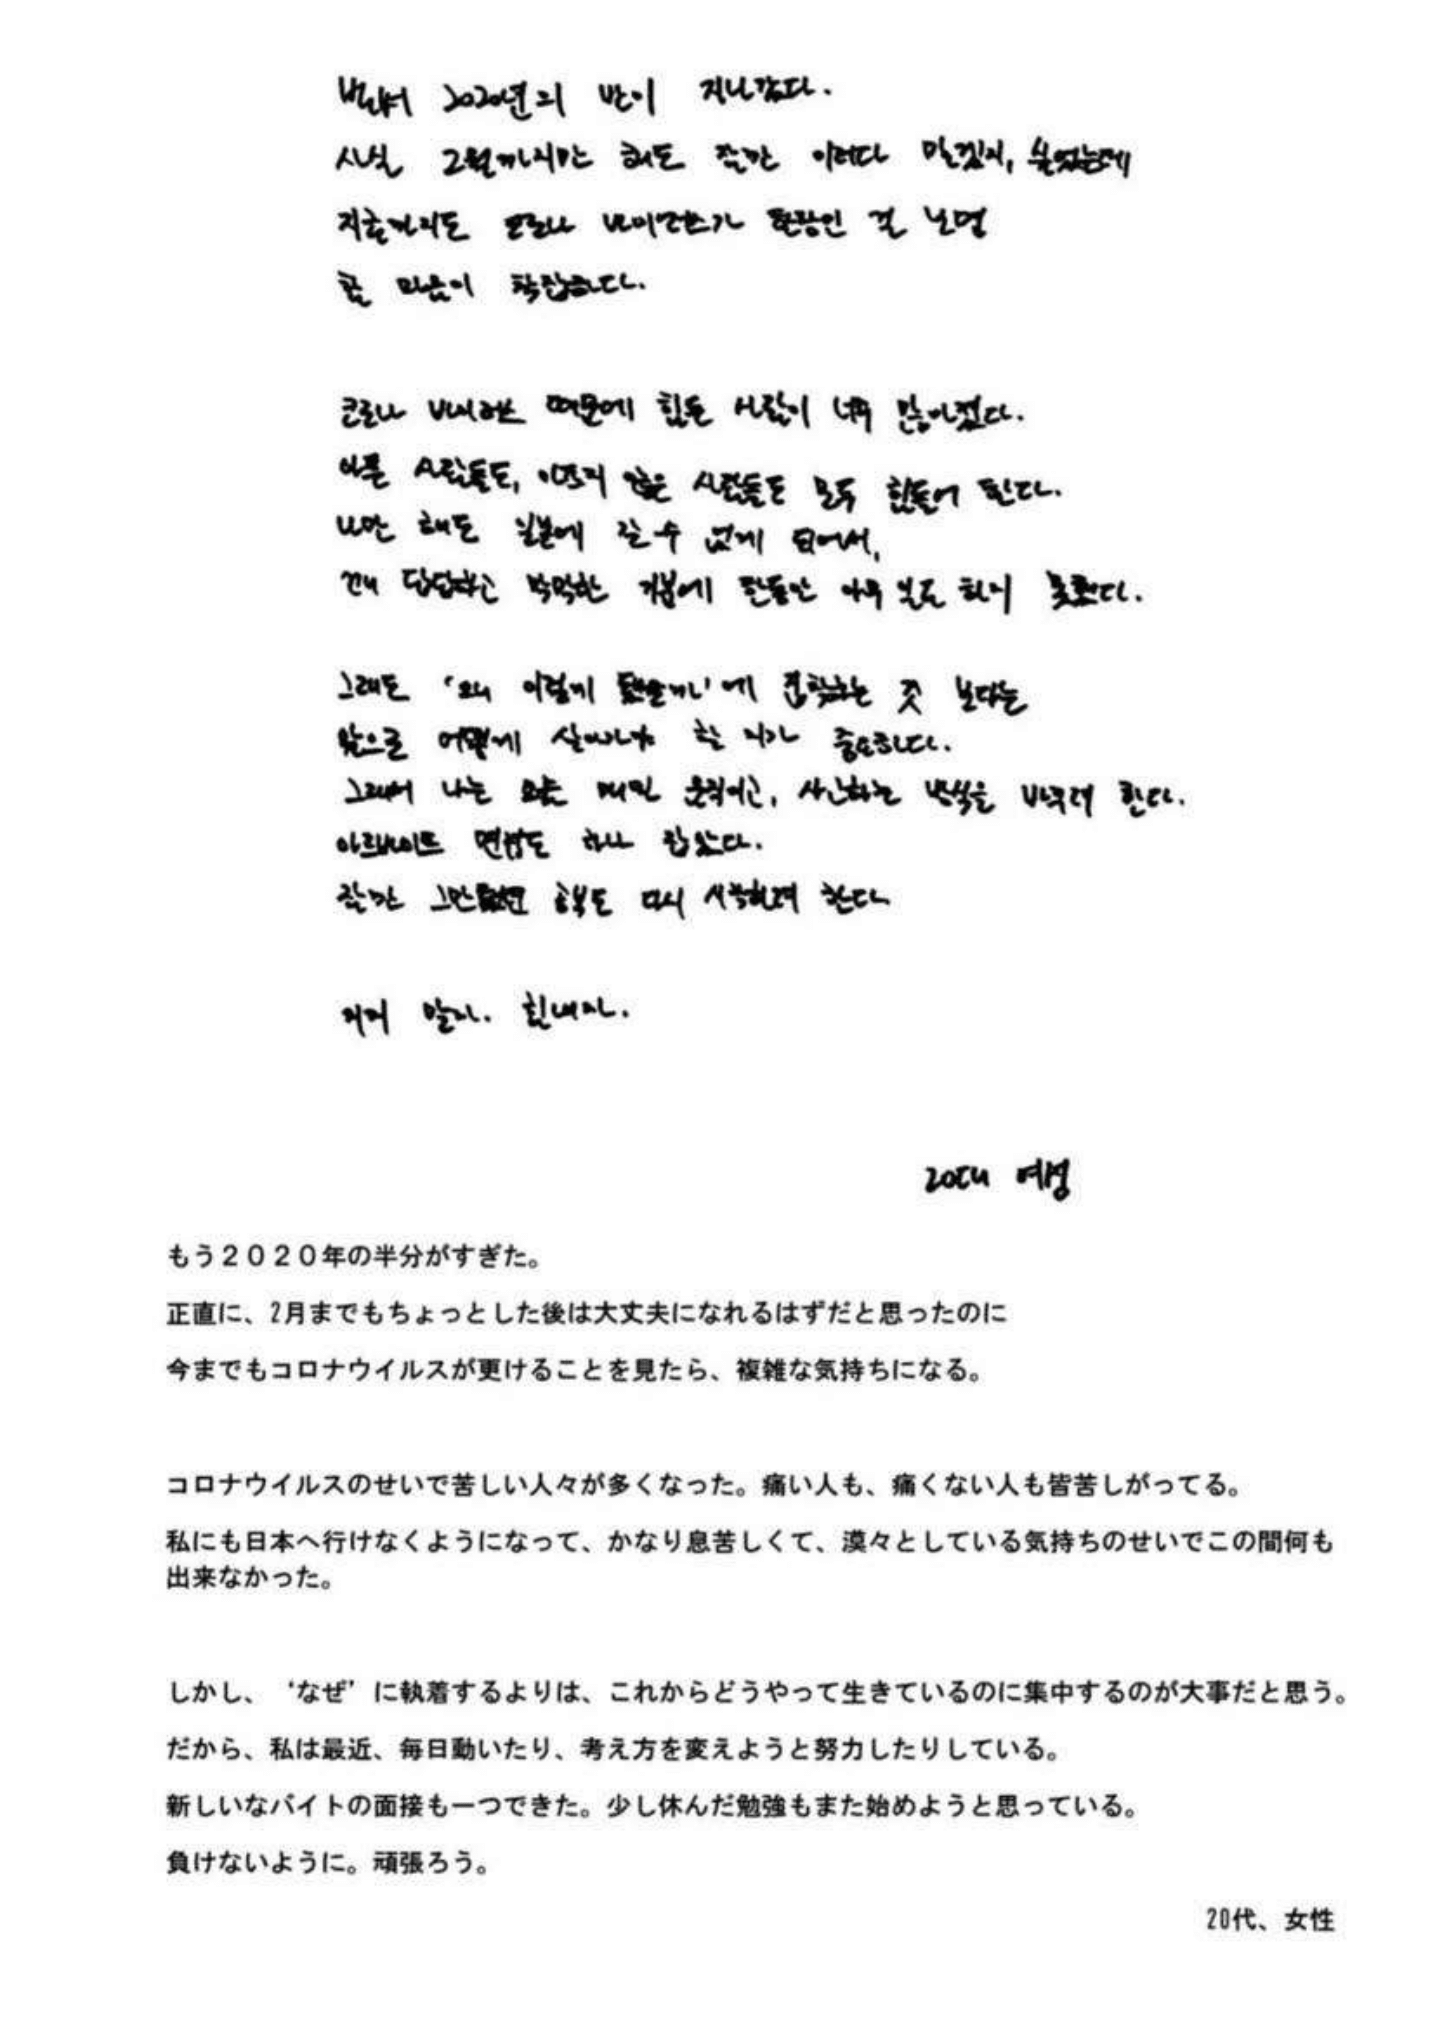 벌써 2020년의 반이 지나갔다.
사실 2월까지만 해도 잠깐 이러다 말겠지, 싶었는데
지금까지도 코로나 바이러스가 한창인 걸 보면
참 마음이 착잡하다.
코로나 바이러스 때문에 힘든 사람이 너무 많아졌다.
아픈 사람들도, 아프지 않은 사람들도 모두 힘들어 한다.
나만 해도 일본에 갈 수 없게 되어서,
꽤 답답하고 막막한 기분에 한동안 아무 일도 하지 못했다.
그래도 '왜 이렇게 됐을까'에 집착하는 것 보다는
앞으로 어떻게 살아나가야 할 지가 중요하다.
그래서 나는 요즘 매일 움직이고, 사고하는 방식을 바꾸려 한다.
아르바이트 면접도 하나 잡았다.
잠깐 그만뒀던 공부도 다시 시작하려 한다
지지 말자. 힘내자.
20대 여성
もう２０２０年の半分がすぎた。
正直に、2月までもちょっとした後は大丈夫になれるはずだと思ったのに
今までもコロナウイルスが更けることを見たら、複雑な気持ちになる。
コロナウイルスのせいで苦しい人々が多くなった。痛い人も、痛くない人も皆苦しがってる。
私にも日本へ行けなくようになって、かなり息苦しくて、漠々としている気持ちのせいでこの間何も
出来なかった。
しかし、‘なぜ’に執着するよりは、これからどうやって生きているのに集中するのが大事だと思う。
だから、私は最近、毎日動いたり、考え方を変えようと努力したりしている。
新しいなバイトの面接も一つできた。少し休んだ勉強もまた始めようと思っている。
負けないように。頑張ろう。
20代、女性